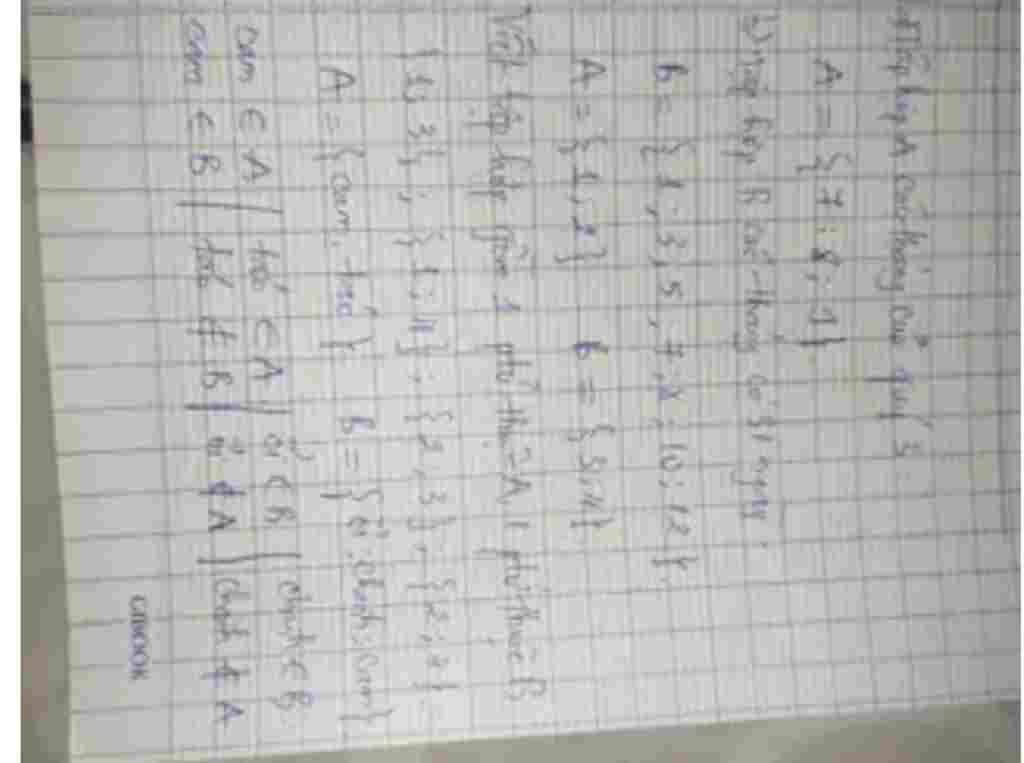 Tập hợp A các tháng của quý 3.
A = { 7 ; 8 ; 9 }.
b) Tập hợp B các tháng có 31 ngày.
B = { 1 ; 3 ; 5 , 7 , 8 ; 10 ; 12 }.
A = { 1 , 2 } B = { 3 , 4 }
Viết tập hợp gồm 1 ptử thuộc A, 1 ptử thuộc B
{ 1; 3 } ; { 1 ; 4 } ; { 2 , 3 } ; { 2 ; 4 }
A = { cam, táo } B = { ổi ; chanh ; cam }
cam ∈ A | táo ∈ A | ổi ∈ B | chanh ∈ B
cam ∈ B | táo ∉ B | ổi ∉ A | chanh ∉ A